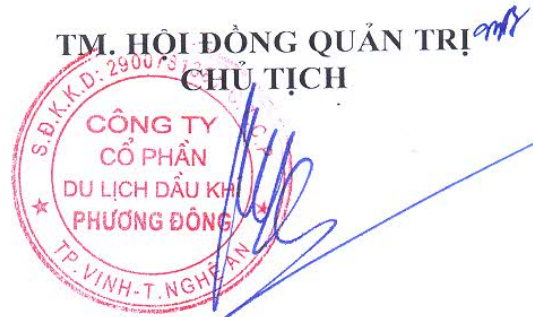 TM. HỘI ĐỒNG QUẢN TRỊ
CHỦ TỊCH
S.Đ.K.K.D:
C.T.C.P
CÔNG TY
CỔ PHẦN
DU LỊCH DẦU KHÍ
PHƯƠNG ĐÔNG
TP. VINH-T. NGHỆ AN